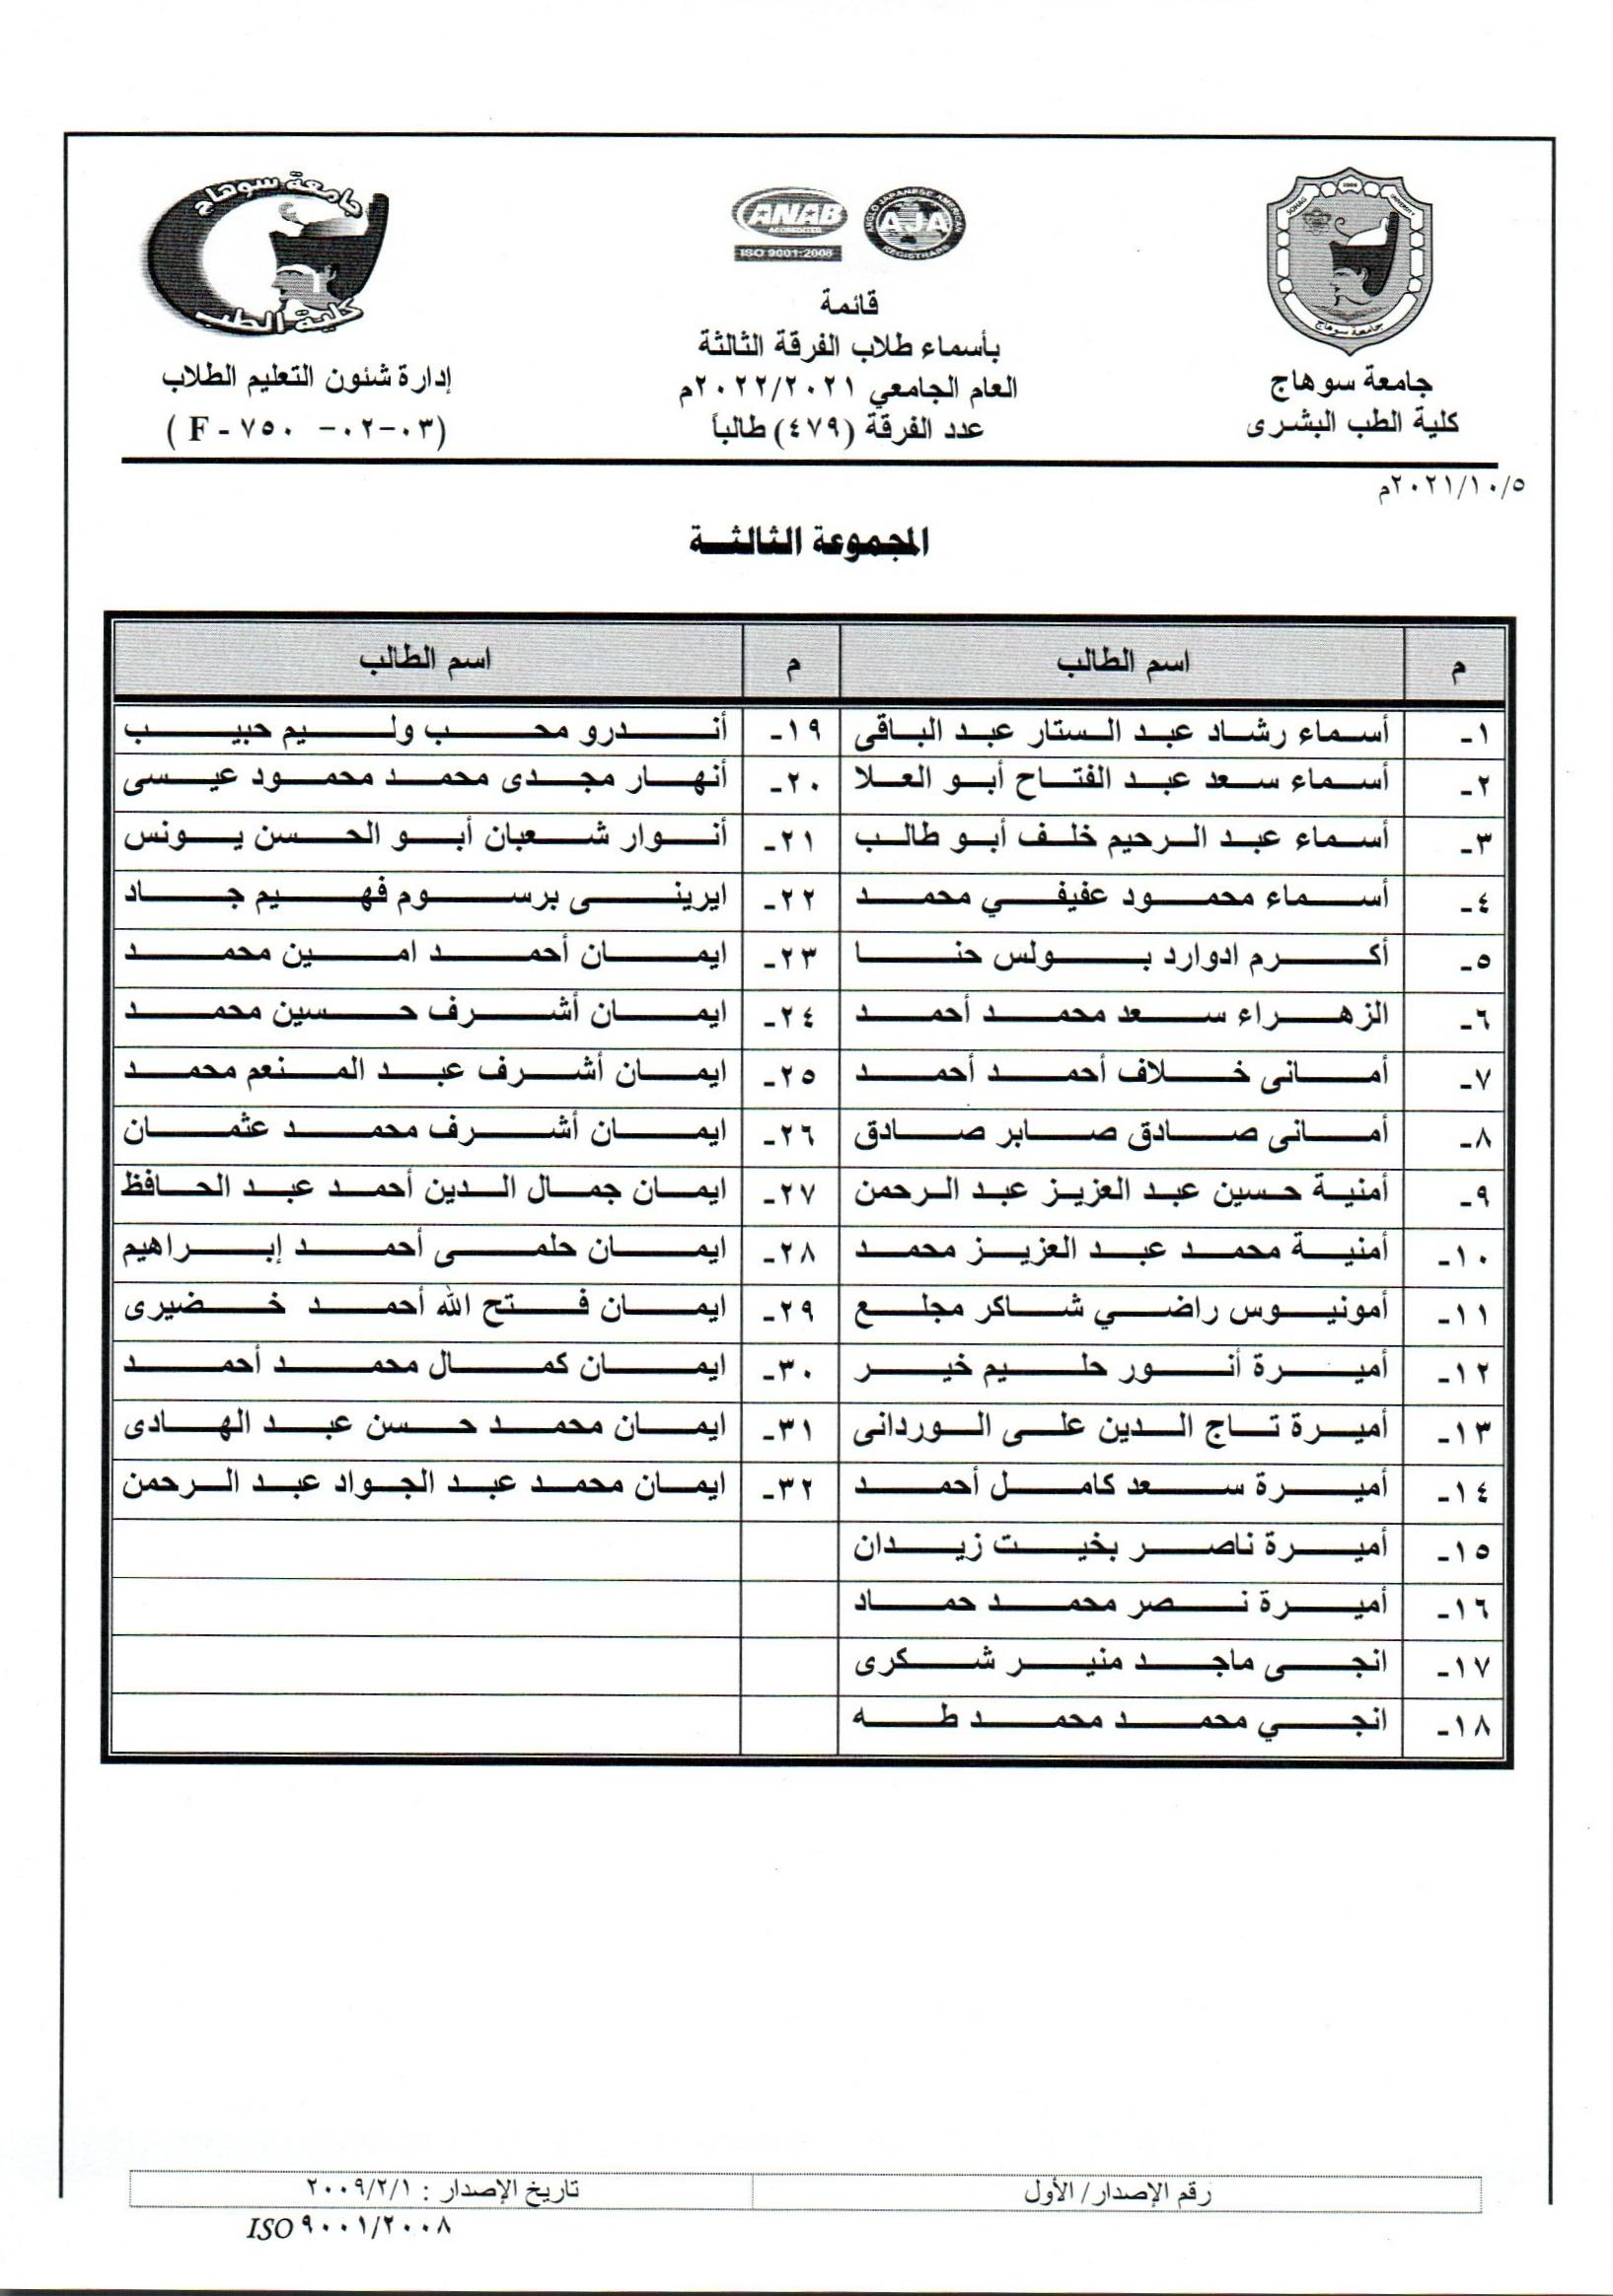 SOHAG 2006 UNIVERSITY
جامعة سوهاج
جامعة سوهاج
كلية الطب البشرى
ANAB
ACCREDITED
ISO 9001:2008
ANGLO JAPANESE AMERICAN
AJA
REGISTRARS
قائمة
بأسماء طلاب الفرقة الثالثة
العام الجامعي ٢٠٢٢/٢٠٢١م
عدد الفرقة (٤٧٩) طالباً
جامعة سوهاج
كلية الطب
إدارة شئون التعليم الطلاب
(F - ٧٥٠ -٠٢-٠٣)
٢٠٢١/١٠/٥م
المجموعة الثالثة
م اسم الطالب م اسم الطالب
١- أسماء رشاد عبد الستار عبد الباقى ١٩- أندرو محب وليم حبيب
٢- أسماء سعد عبد الفتاح أبو العلا ٢٠- أنهار مجدى محمد محمود عيسى
٣- أسماء عبد الرحيم خلف أبو طالب ٢١- أنوار شعبان أبو الحسن يونس
٤- أسماء محمود عفيفي محمد ٢٢- ايرينى برسوم فهيم جاد
٥- أكرم ادوارد بولس حنا ٢٣- ايمان أحمد امين محمد
٦- الزهراء سعد محمد أحمد ٢٤- ايمان أشرف حسين محمد
٧- أمانى خلاف أحمد أحمد ٢٥- ايمان أشرف عبد المنعم محمد
٨- أمانى صادق صابر صادق ٢٦- ايمان أشرف محمد عثمان
٩- أمنية حسين عبد العزيز عبد الرحمن ٢٧- ايمان جمال الدين أحمد عبد الحافظ
١٠- أمنية محمد عبد العزيز محمد ٢٨- ايمان حلمى أحمد إبراهيم
١١- أمونيوس راضي شاكر مجلع ٢٩- ايمان فتح الله أحمد خضيرى
١٢- أميرة أنور حليم خير ٣٠- ايمان كمال محمد أحمد
١٣- أميرة تاج الدين على الوردانى ٣١- ايمان محمد حسن عبد الهادى
١٤- أميرة سعد كامل أحمد ٣٢- ايمان محمد عبد الجواد عبد الرحمن
١٥- أميرة ناصر بخيت زيدان
١٦- أميرة نصر محمد حماد
١٧- انجى ماجد منير شكرى
١٨- انجي محمد محمد طه
رقم الإصدار/ الأول تاريخ الإصدار : ٢٠٠٩/٢/١
ISO ٩٠٠١/٢٠٠٨